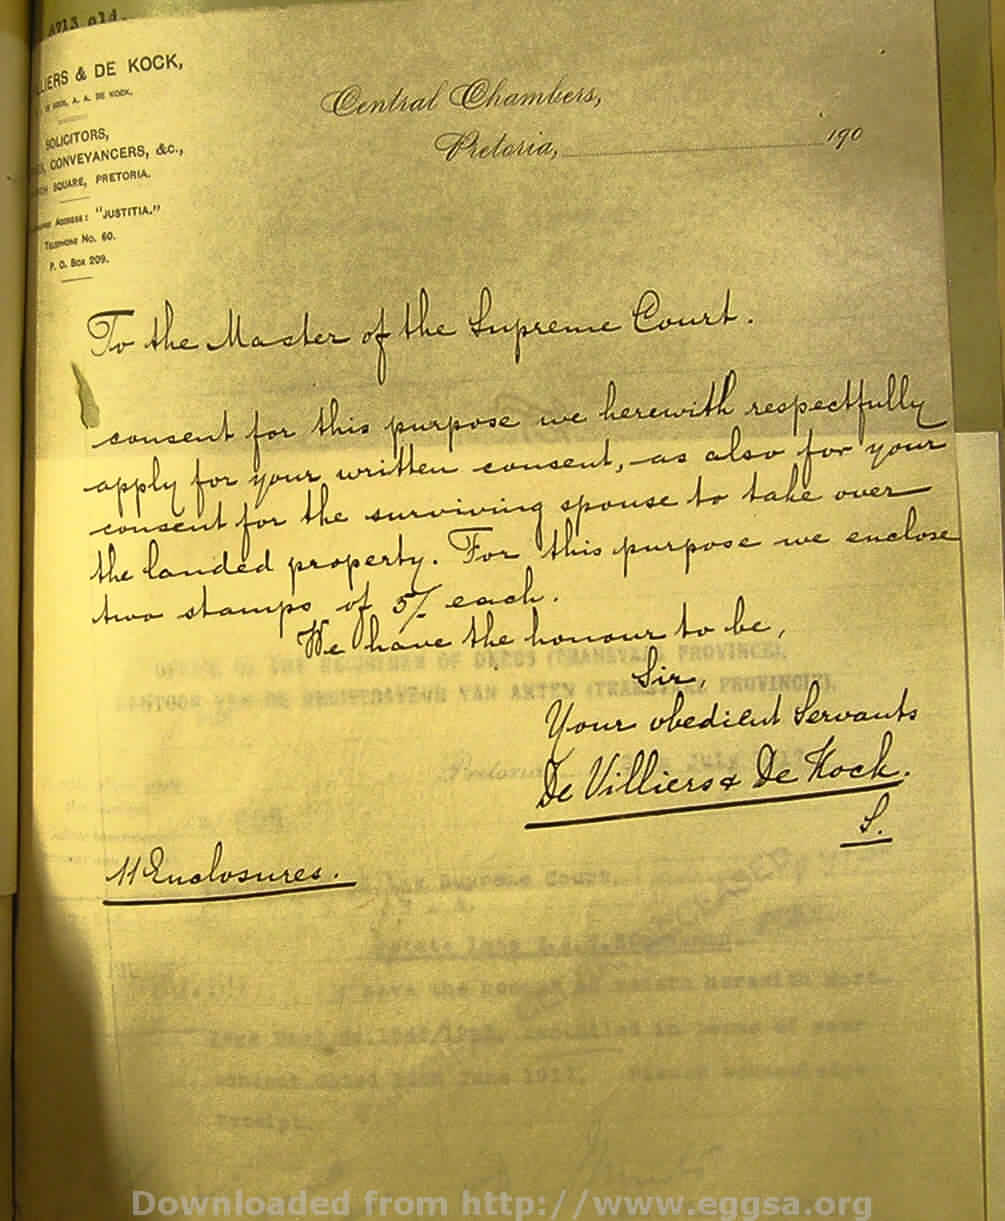 A913 old.
LIERS & DE KOCK,
DE KOCK, A. A. DE KOCK.
SOLICITORS,
CONVEYANCERS, &c.,
SQUARE, PRETORIA.
ADDRESS: "JUSTITIA."
TELEPHONE NO. 60.
P. O. BOX 209.
Central Chambers,
Pretoria, 190
To the Master of the Supreme Court.
consent for this purpose we herewith respectfully
apply for your written consent, as also for your
consent for the surviving spouse to take over
the landed property. For this purpose we enclose
two stamps of 5/- each.
We have the honour to be,
Sir,
Your obedient Servants
De Villiers & De Kock.
S.
11 Enclosures.
OFFICE OF THE REGISTRAR OF DEEDS (TRANSVAAL PROVINCE),
KANTOOR VAN DE REGISTRATEUR VAN AKTEN (TRANSVAAL PROVINCIE).
Pretoria July
Supreme Court,
Estate late
have the honour to return herewith Mort-
cancelled in terms of your
consent dated June 1917. Please acknowledge
receipt.
Downloaded from http://www.eggsa.org